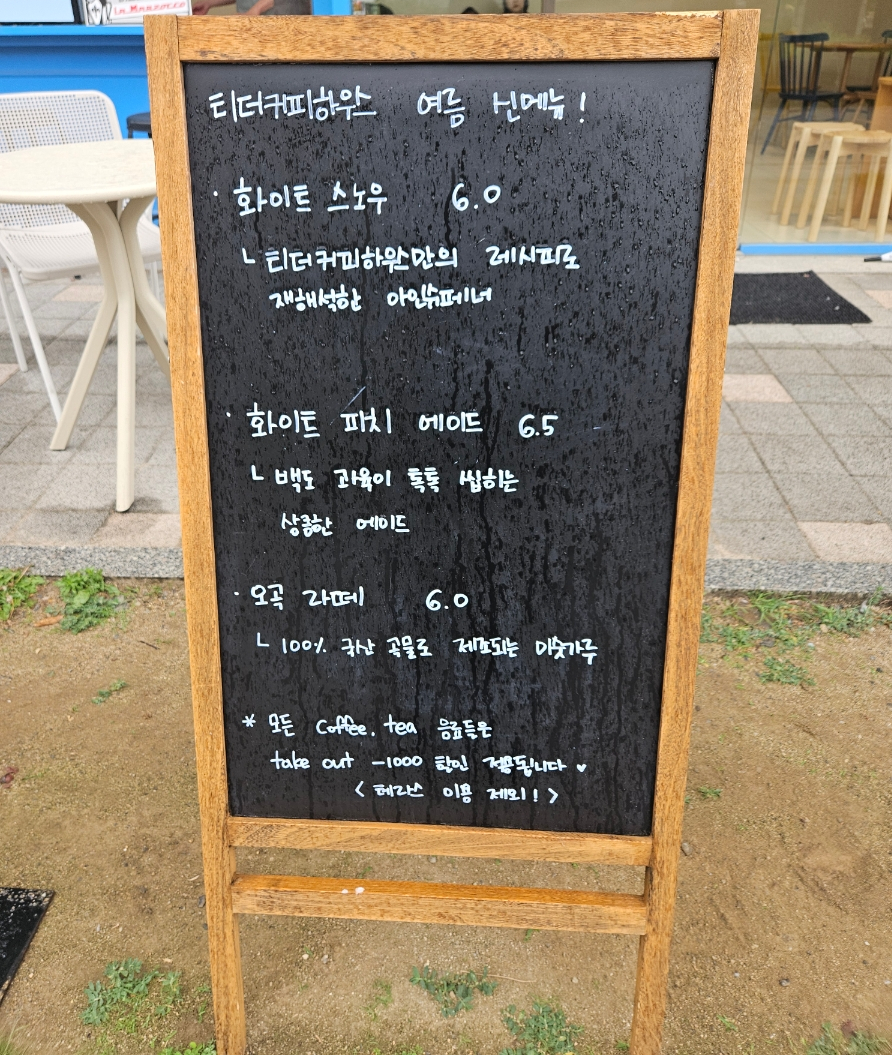 La Marzocco
티더커피하우스 여름 신메뉴!
· 화이트 스노우 6.0
ㄴ 티더커피하우스만의 레시피로
재해석한 아인슈페너
· 화이트 피치 에이드 6.5
ㄴ 백도 과육이 톡톡 씹히는
상큼한 에이드
· 오곡 라떼 6.0
ㄴ 100% 국산 곡물로 제조되는 미숫가루
* 모든 coffee, tea 음료들은
take out -1000 할인 적용됩니다 ♥
< 테라스 이용 제외! >